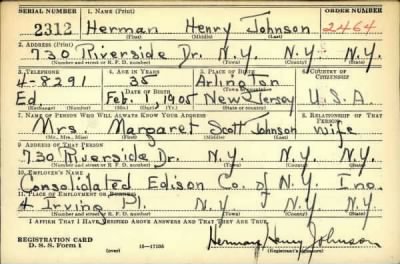 SERIAL NUMBER 1. NAME (Print) ORDER NUMBER
2312 Herman Henry Johnson 2464
(First) (Middle) (Last)
2. ADDRESS (Print)
730 Riverside Dr. N.Y. N.Y. N.Y.
(Number and street or R. F. D. number) (Town) (County) (State)
3. TELEPHONE 4. AGE IN YEARS 5. PLACE OF BIRTH 6. COUNTRY OF CITIZENSHIP
4-8291 35 Arlington
DATE OF BIRTH
Ed. Feb. 1, 1905 New Jersey U.S.A.
(Exchange) (Mo.) (Day) (Yr.) (State or country)
7. NAME OF PERSON WHO WILL ALWAYS KNOW YOUR ADDRESS 8. RELATIONSHIP OF THAT PERSON
Mrs. Margaret Scott Johnson wife
(Mr., Mrs., Miss) (First) (Middle) (Last)
9. ADDRESS OF THAT PERSON
730 Riverside Dr. N.Y. N.Y. N.Y.
(Number and street or R. F. D. number) (Town) (County) (State)
10. EMPLOYER'S NAME
Consolidated Edison Co. of N.Y. Inc.
11. PLACE OF EMPLOYMENT OR BUSINESS
4 Irving Pl. N.Y. N.Y. N.Y.
(Number and street or R. F. D. number) (Town) (County) (State)
I AFFIRM THAT I HAVE VERIFIED ABOVE ANSWERS AND THAT THEY ARE TRUE.
REGISTRATION CARD Herman Henry Johnson
D. S. S. FORM 1 (over) 16-17105 (Registrant's signature)